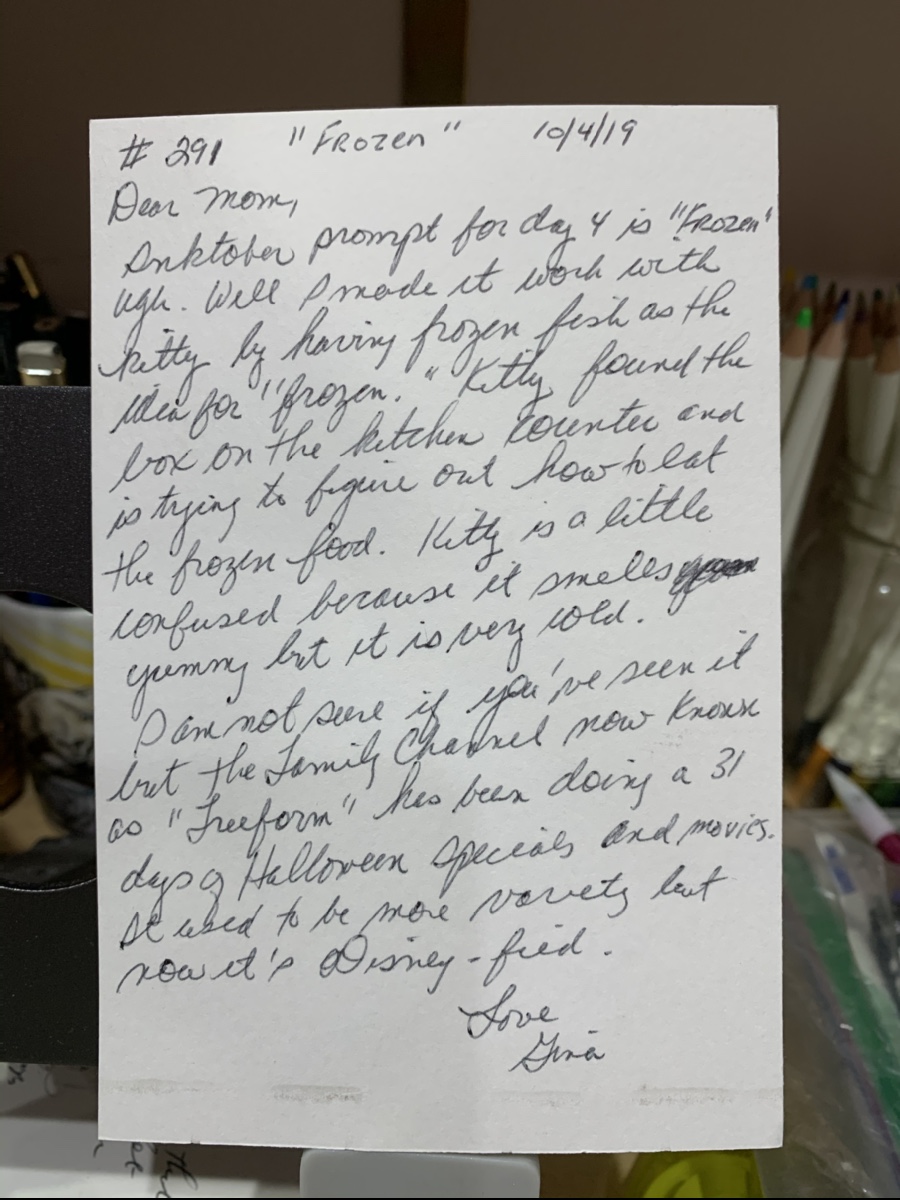 # 291 "Frozen" 10/4/19
Dear Mom,
Inktober prompt for day 4 is "Frozen"
ugh. Well I made it work with
kitty by having frozen fish as the
idea for "frozen." Kitty found the
box on the kitchen counter and
is trying to figure out how to eat
the frozen food. Kitty is a little
confused because it smells
yummy but it is very cold.
I am not sure if you've seen it
but the Family Channel now known
as "Freeform" has been doing a 31
days of Halloween specials and movies.
It used to be more variety but
now it's Disney-fied.
Love
Gina